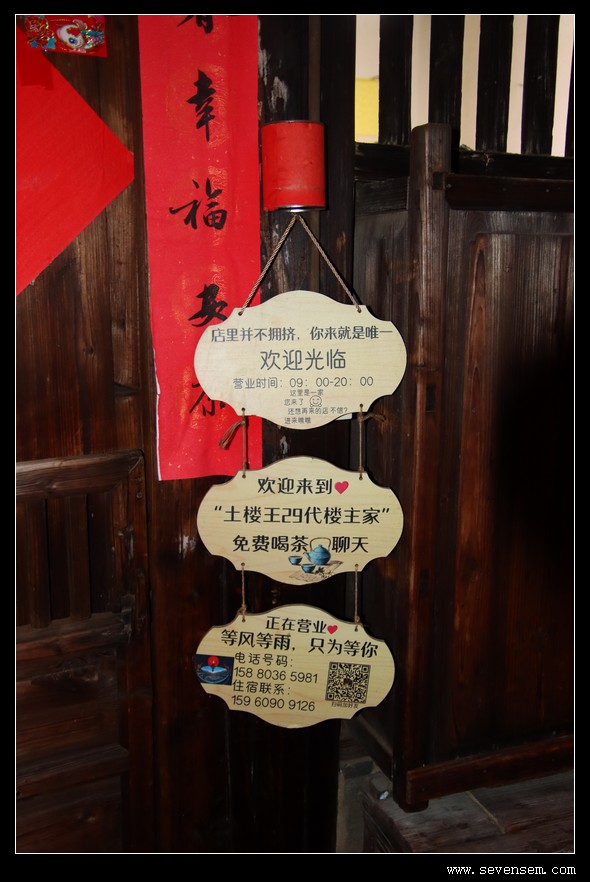 幸
福
店里并不拥挤，你来就是唯一
欢迎光临
营业时间：09：00-20：00
这里是一家
您来了
还想再来的店 不信?
进来瞧瞧
欢迎来到
“土楼王29代楼主家”
免费喝茶 聊天
正在营业
等风等雨，只为等你
电话号码：
158 8036 5981
住宿联系：
159 6090 9126
www.sevensem.com